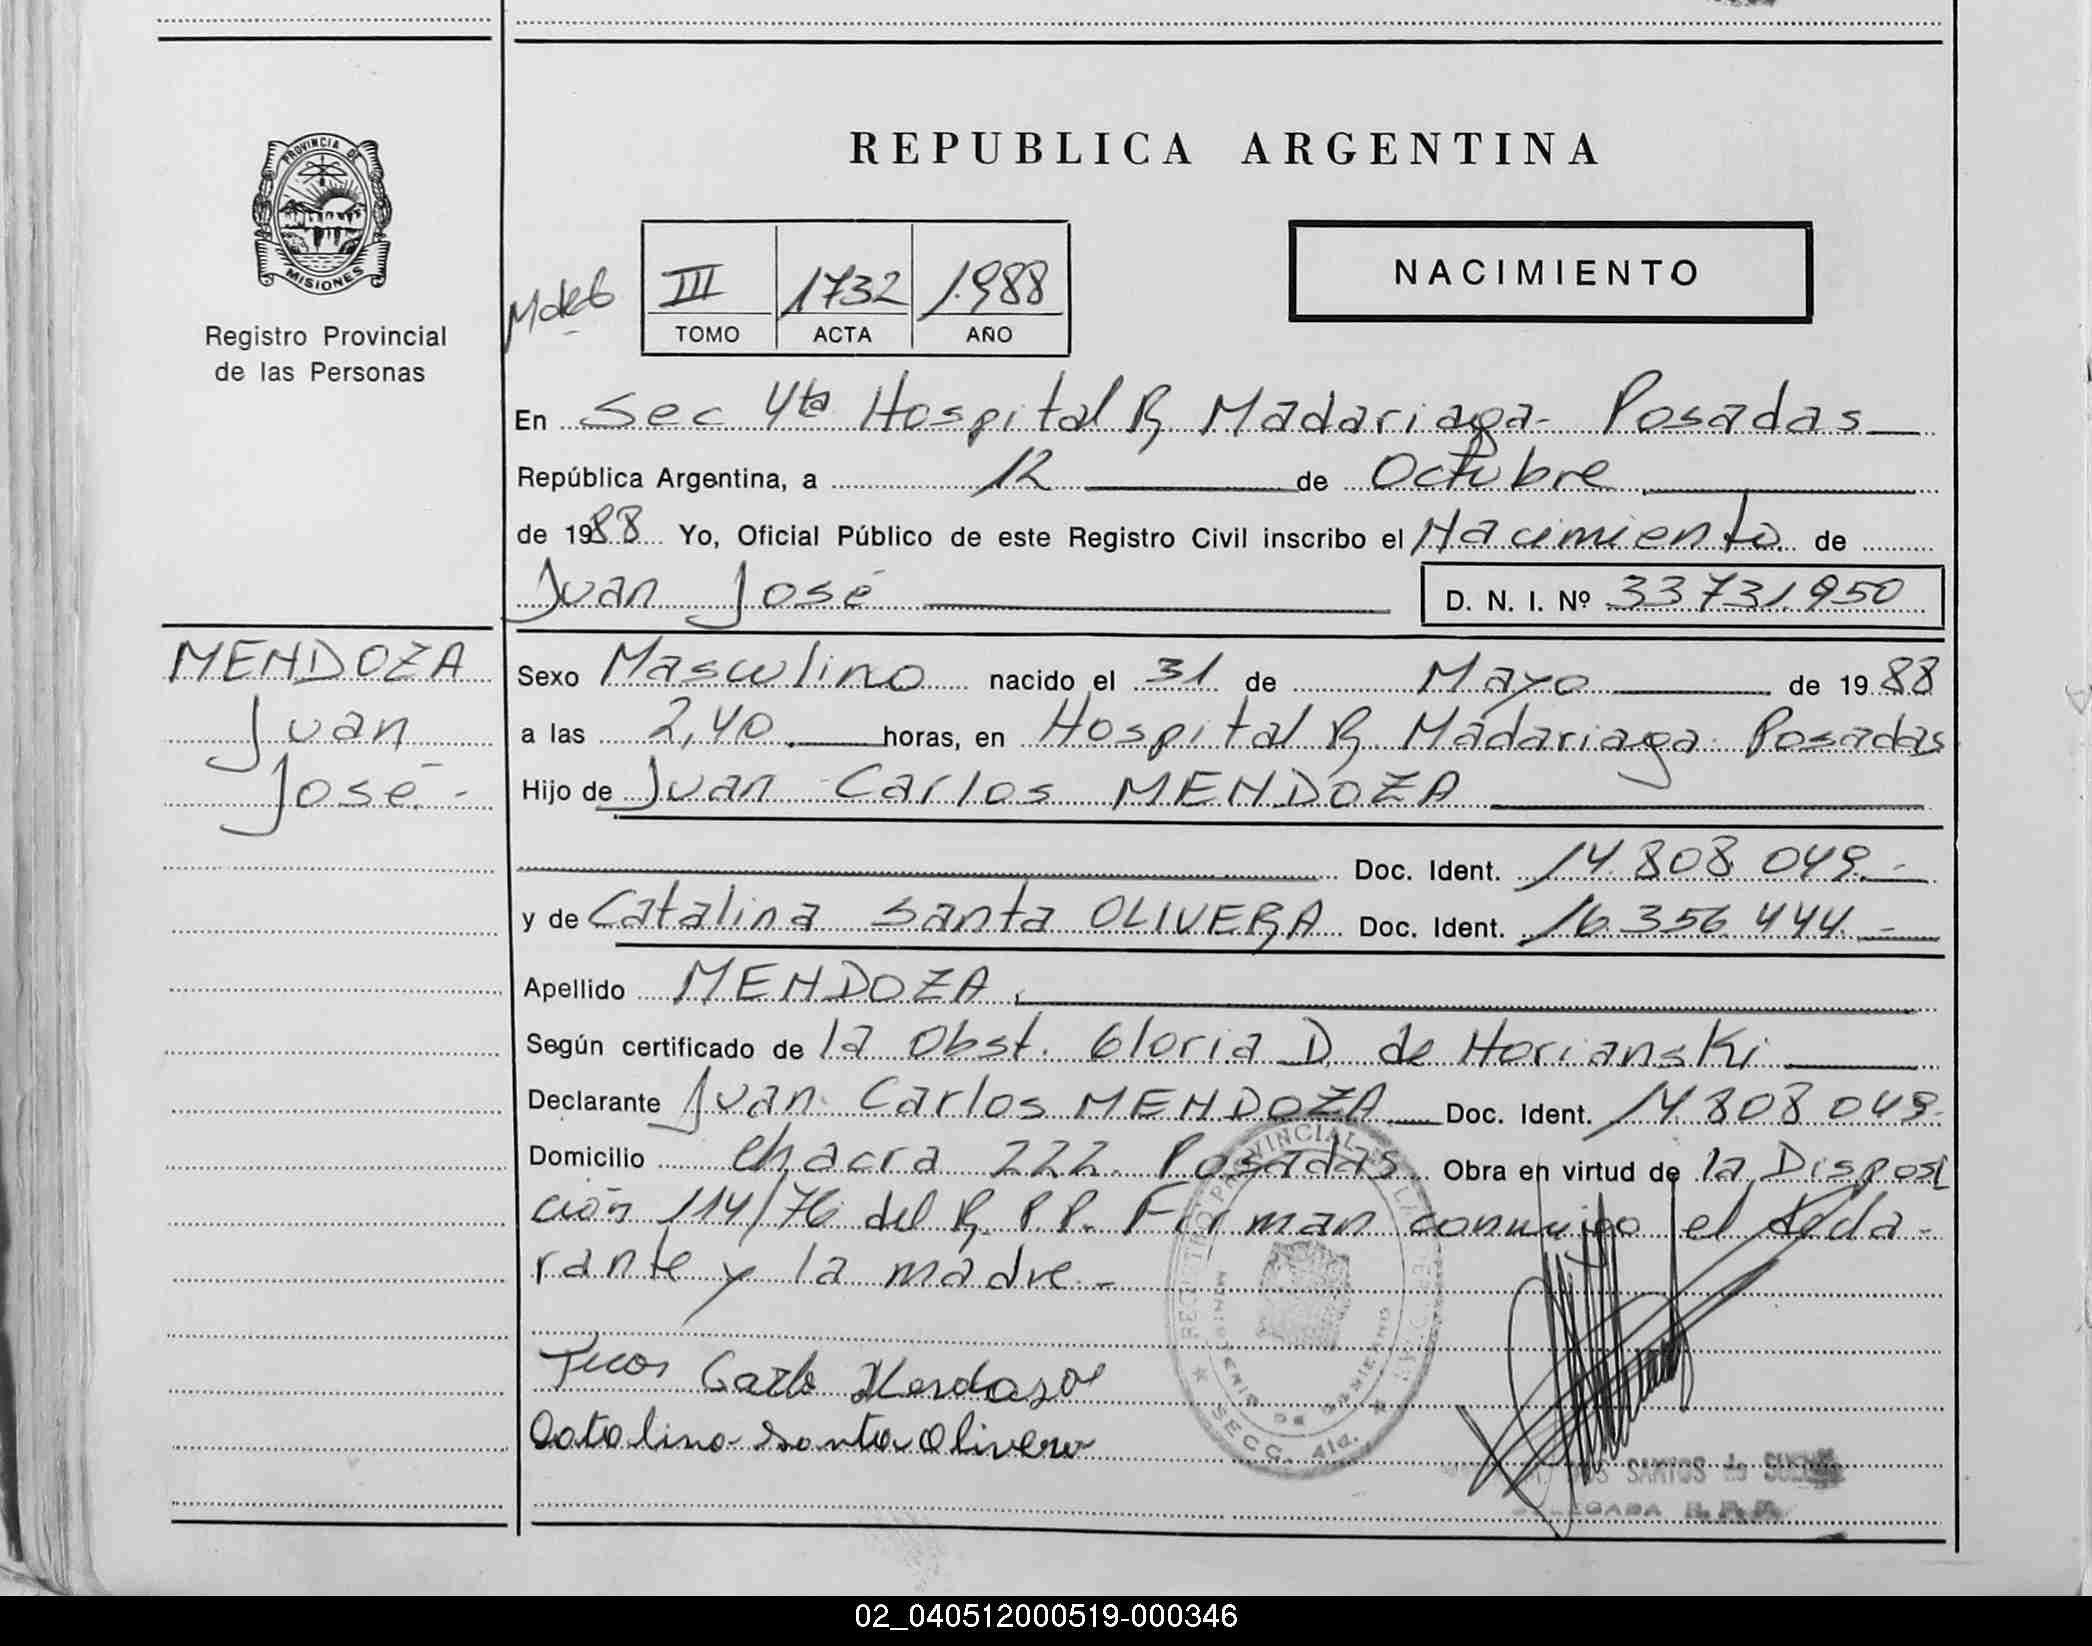 REPUBLICA ARGENTINA
PROVINCIA DE
MISIONES
Registro Provincial
de las Personas
III 1732 1988
TOMO ACTA AÑO
NACIMIENTO
En Sec 4ta Hospital R Madariaga - Posadas
República Argentina, a 12 de Octubre
de 1988 Yo, Oficial Público de este Registro Civil inscribo el Nacimiento de
Juan José D. N. I. Nº 33731950
MENDOZA
Juan
José.-
Sexo Masculino nacido el 31 de Mayo de 1988
a las 2,40 horas, en Hospital R. Madariaga Posadas
Hijo de Juan Carlos MENDOZA
Doc. Ident. 14.808.049.-
y de Catalina Santa OLIVERA Doc. Ident. 16.356.444.-
Apellido MENDOZA
Según certificado de la Obst. Gloria D. de Horianski
Declarante Juan Carlos MENDOZA Doc. Ident. 14.808.049.
Domicilio Chacra 222. Posadas Obra en virtud de la Disposi
ción 114/76 del R. P. P. Firman conmigo el decla-
rante y la madre.-
Juan Carlo Mendoza
Catalina Santa Olivera
REGISTRO PROVINCIAL DE LAS PERSONAS
MINISTERIO DE GOBIERNO
SECC. 4ta.
DOS SANTOS de
DELEGADA R.P.P.
02_040512000519-000346